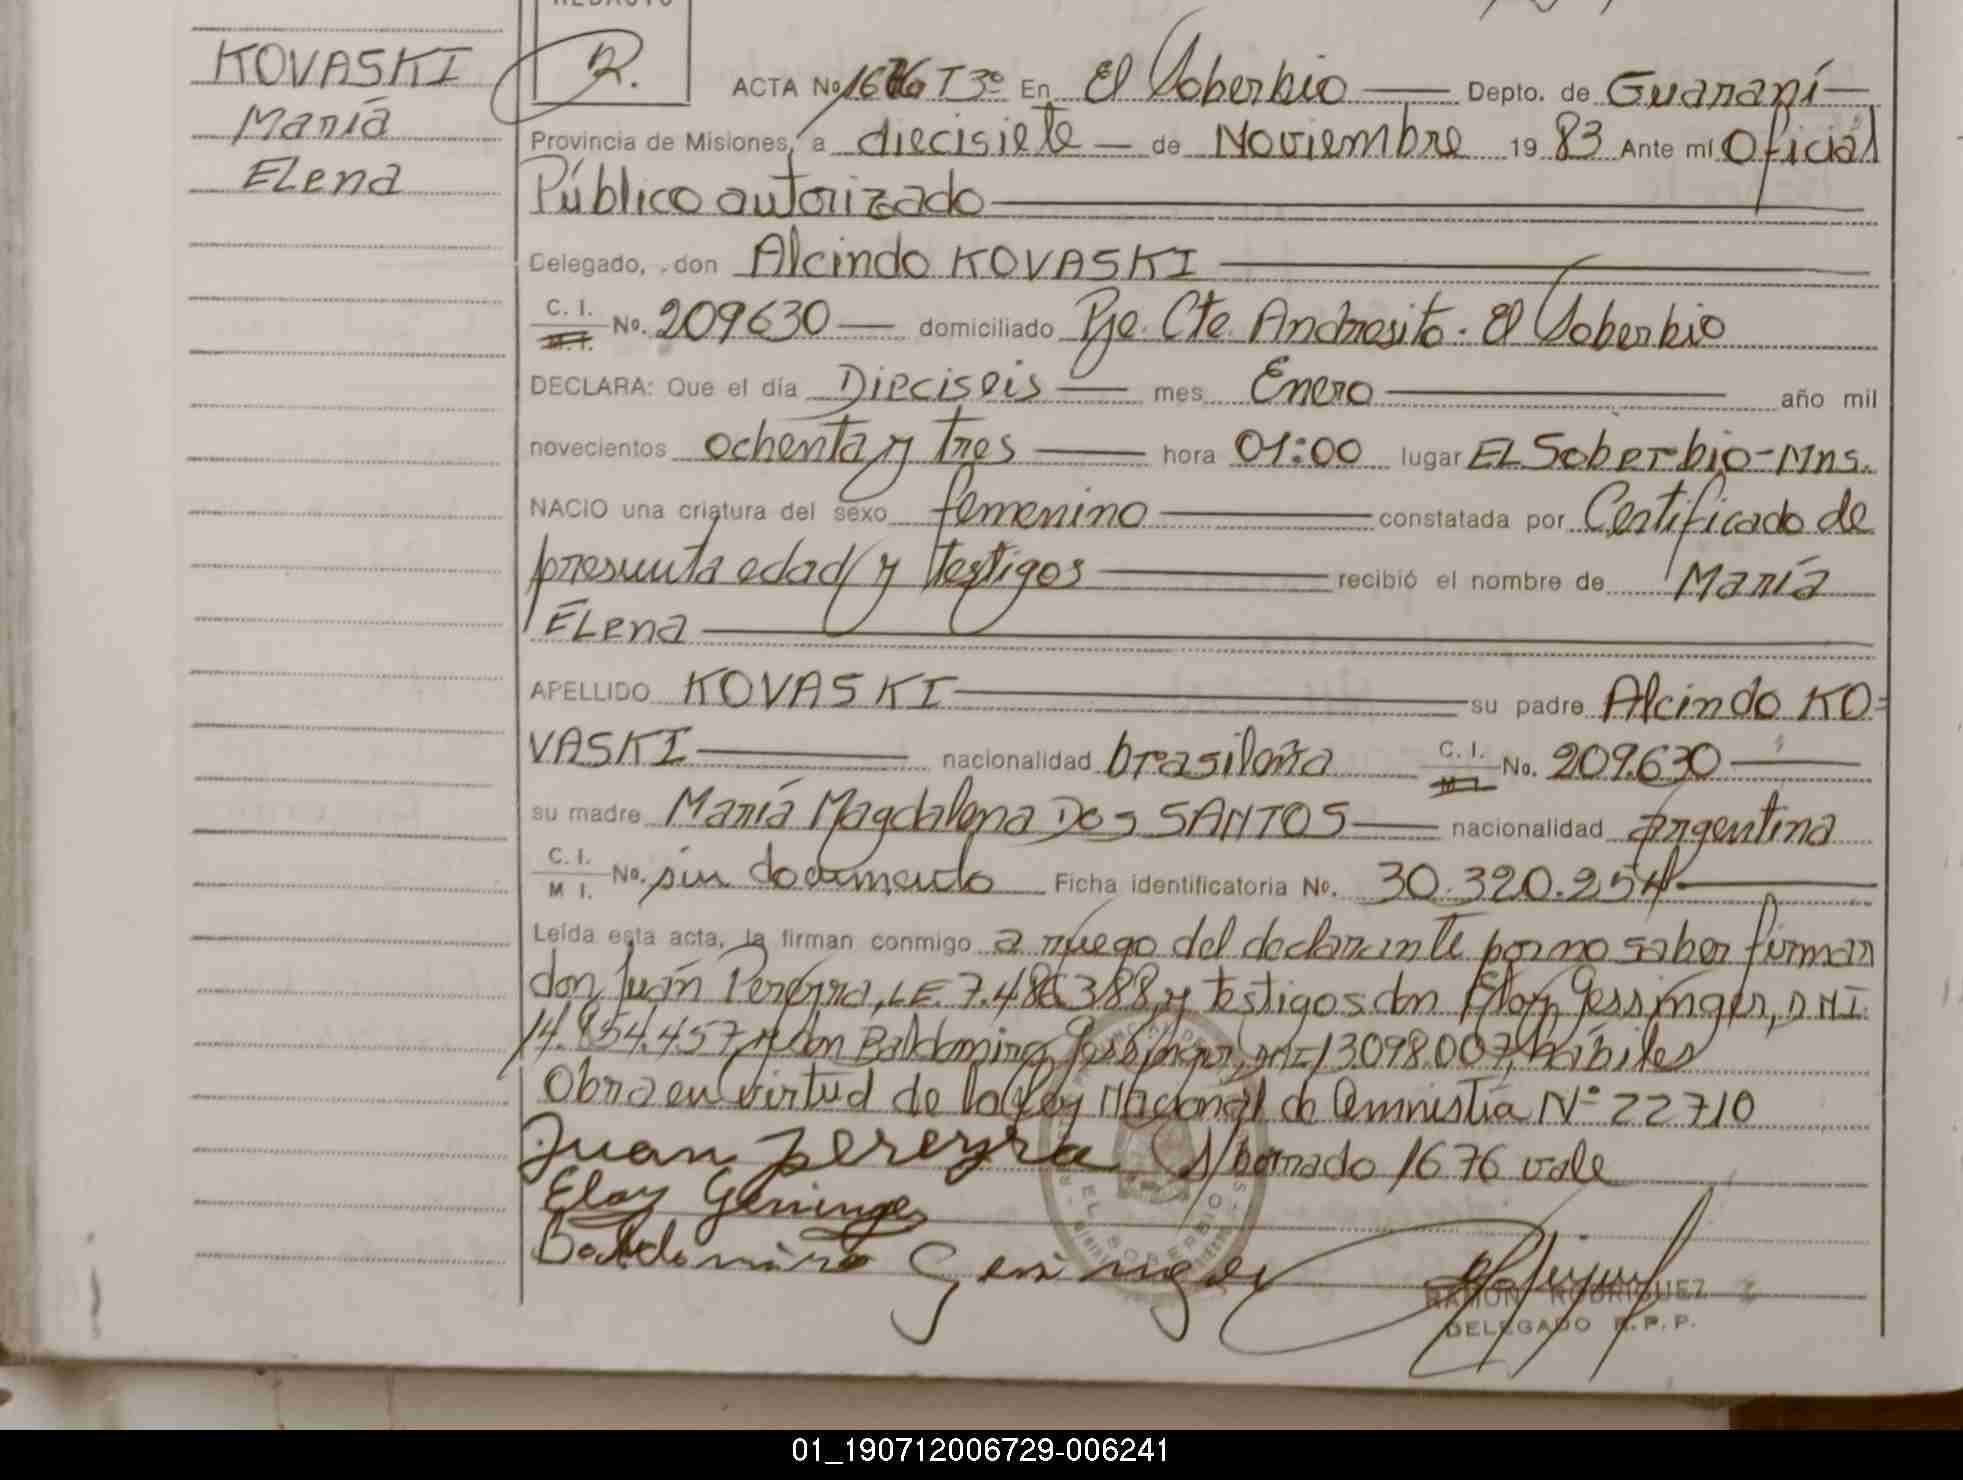 REDACTO
R.
KOVASKI
María
Elena
ACTA No 1676 T3º En El Soberbio Depto. de Guaraní
Provincia de Misiones, a diecisiete de Noviembre 1983 Ante mí Oficial
Público autorizado
Delegado, don Alcindo KOVASKI
C. I. M. I. No. 209630 domiciliado Pje. Cte. Andresito. El Soberbio
DECLARA: Que el día Dieciseis mes Enero año mil
novecientos ochenta y tres hora 01:00 lugar EL Soberbio-Mns.
NACIO una criatura del sexo femenino constatada por Certificado de
presunta edad y testigos recibió el nombre de María
Elena
APELLIDO KOVASKI su padre Alcindo KO=
VASKI nacionalidad brasileña C. I. M. I. No. 209.630
su madre María Magdalena Dos SANTOS nacionalidad argentina
C. I. M I. No. sin documento Ficha identificatoria No. 30.320.254
Leída esta acta, la firman conmigo a ruego del declarante por no saber firmar
don Juán Pereyra, L.E. 7.486388, y testigos don Eloy Gessinger, D.N.I.
14.854.457 y don Baldomiro Gessinger, DNI 13.098.007, hábiles
Obra en virtud de la Ley Nacional de Amnistía Nº 22710
Juan Pereyra S/borrado 1676 vale
Eloy Geninger
Baldomiro Geninger
EL SOBERBIO
RAMON RODRIGUEZ
DELEGADO R.P.P.
01_190712006729-006241